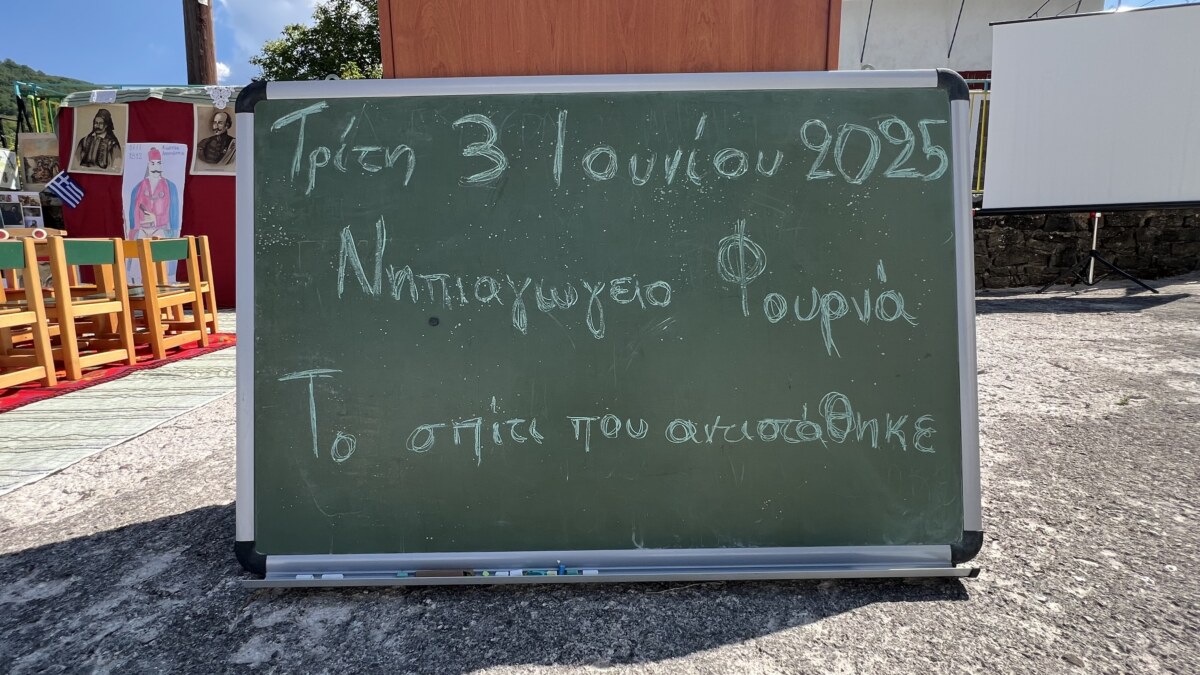 Τρίτη 3 Ιουνίου 2025
Νηπιαγωγειο Φουρνά
Το σπίτι που αντιστάθηκε